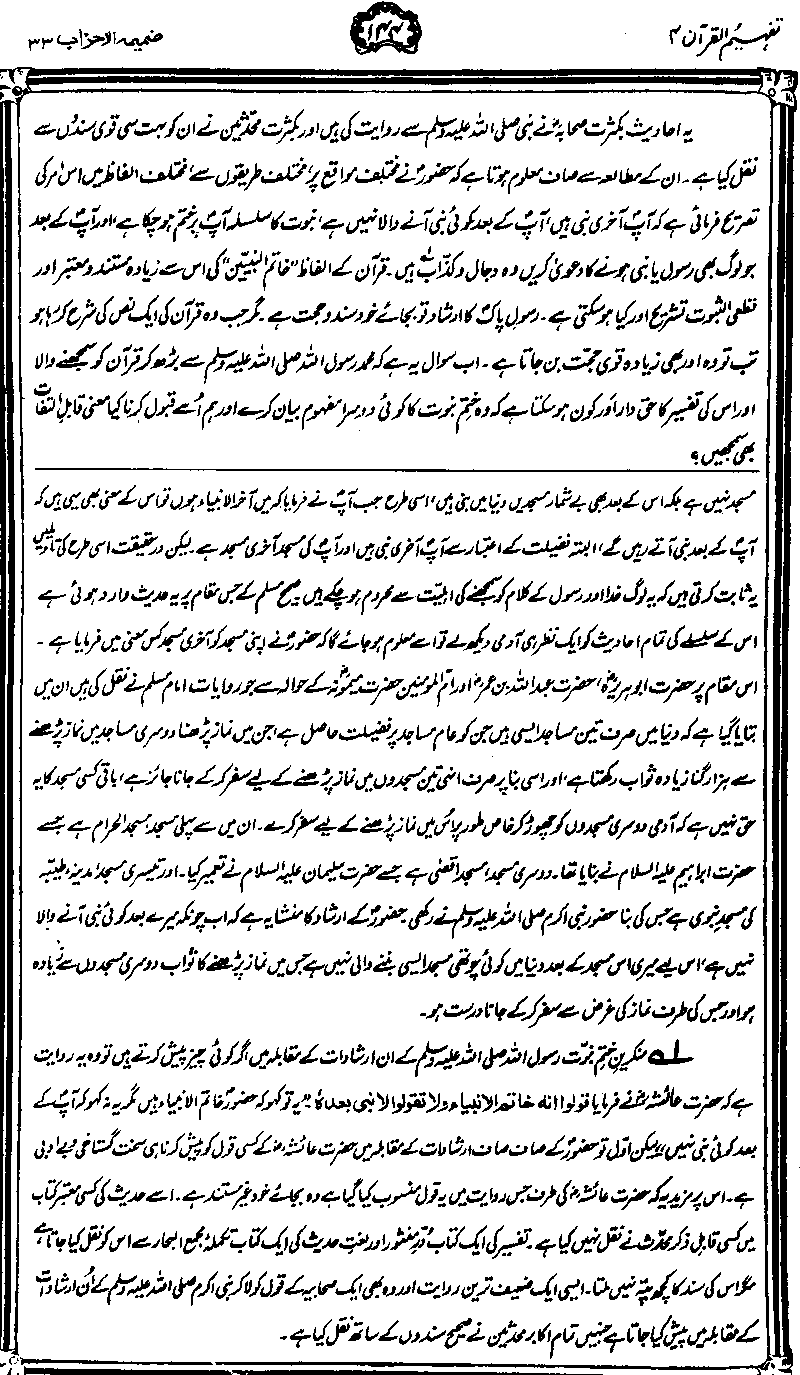 تفہیم القرآن ۴
۱۴۴
ضمیمہ الاحزاب ۳۳
یہ احادیث بکثرت صحابہؓ نے نبی صلی اللہ علیہ وسلم سے روایت کی ہیں اور بکثرت محدثین نے ان کو بہت سی قوی سندوں سے
نقل کیا ہے۔ ان کے مطالعہ سے صاف معلوم ہوتا ہے کہ حضورؐ نے مختلف مواقع پر، مختلف طریقوں سے، مختلف الفاظ میں اس امر کی
تصریح فرمائی ہے کہ آپؐ آخری نبی ہیں، آپؐ کے بعد کوئی نبی آنے والا نہیں ہے، نبوت کا سلسلہ آپؐ پر ختم ہو چکا ہے، اور آپؐ کے بعد
جو لوگ بھی رسول یا نبی ہونے کا دعویٰ کریں وہ دجال و کذاب ہیں۔ قرآن کے الفاظ "خاتم النبیین" کی اس سے زیادہ مستند و معتبر اور
قطعی الثبوت تشریح اور کیا ہو سکتی ہے۔ رسول پاکؐ کا ارشاد تو بجائے خود سند و حجت ہے۔ مگر جب وہ قرآن کی ایک نص کی شرح کر رہا ہو
تب تو وہ اور بھی زیادہ قوی حجت بن جاتا ہے۔ اب سوال یہ ہے کہ محمد رسول اللہ صلی اللہ علیہ وسلم سے بڑھ کر قرآن کو سمجھنے والا
اور اس کی تفسیر کا حق دار اور کون ہو سکتا ہے کہ وہ ختم نبوت کا کوئی دوسرا مفہوم بیان کرے اور ہم اُسے قبول کرنا کیا معنی قابل التفات
بھی سمجھیں؟
مسجد نہیں ہے بلکہ اس کے بعد بھی بے شمار مسجدیں دنیا میں بنی ہیں، اسی طرح جب آپؐ نے فرمایا کہ میں آخر الانبیاء ہوں تو اس کے معنی بھی یہی ہیں کہ
آپؐ کے بعد نبی آتے رہیں گے، البتہ فضیلت کے اعتبار سے آپؐ آخری نبی ہیں اور آپؐ کی مسجد آخری مسجد ہے۔ لیکن درحقیقت اسی طرح کی تاویلیں
یہ ثابت کرتی ہیں کہ یہ لوگ خدا اور رسول کے کلام کو سمجھنے کی اہلیت سے محروم ہو چکے ہیں۔ صحیح مسلم کے جس مقام پر یہ حدیث وارد ہوئی ہے
اس کے سلسلے کی تمام احادیث کو ایک نظر ہی آدمی دیکھ لے تو اسے معلوم ہو جائے گا کہ حضورؐ نے اپنی مسجد کو آخری مسجد کس معنی میں فرمایا ہے۔
اس مقام پر حضرت ابوہریرہؓ، حضرت عبداللہ بن عمرؓ اور ام المومنین حضرت میمونہؓ کے حوالہ سے جو روایات امام مسلم نے نقل کی ہیں ان میں
بتایا گیا ہے کہ دنیا میں صرف تین مساجد ایسی ہیں جن کو عام مساجد پر فضیلت حاصل ہے، جن میں نماز پڑھنا دوسری مساجد میں نماز پڑھنے
سے ہزار گنا زیادہ ثواب رکھتا ہے، اور اسی بنا پر صرف انہی تین مسجدوں میں نماز پڑھنے کے لیے سفر کر کے جانا جائز ہے، باقی کسی مسجد کا یہ
حق نہیں ہے کہ آدمی دوسری مسجدوں کو چھوڑ کر خاص طور پر اُس میں نماز پڑھنے کے لیے سفر کرے۔ ان میں سے پہلی مسجد، مسجد الحرام ہے جسے
حضرت ابراہیم علیہ السلام نے بنایا تھا۔ دوسری مسجد، مسجد اقصیٰ ہے جسے حضرت سلیمان علیہ السلام نے تعمیر کیا۔ اور تیسری مسجد، مدینۂ طیبہ
کی مسجد نبوی ہے جس کی بنا حضور نبی اکرم صلی اللہ علیہ وسلم نے رکھی۔ حضورؐ کے ارشاد کا منشا یہ ہے کہ اب چونکہ میرے بعد کوئی نبی آنے والا
نہیں ہے، اس لیے میری اس مسجد کے بعد دنیا میں کوئی چوتھی مسجد ایسی بننے والی نہیں ہے جس میں نماز پڑھنے کا ثواب دوسری مسجدوں سے زیادہ
ہو اور جس کی طرف نماز کی غرض سے سفر کر کے جانا درست ہو۔
لہ منکرین ختم نبوت رسول اللہ صلی اللہ علیہ وسلم کے ان ارشادات کے مقابلہ میں اگر کوئی چیز پیش کرتے ہیں تو وہ یہ روایت
ہے کہ حضرت عائشہؓ نے فرمایا قولوا انہ خاتم الانبیاء ولا تقولوا لا نبی بعدہ: "یہ تو کہو کہ حضورؐ خاتم الانبیاء ہیں مگر یہ نہ کہو کہ آپؐ کے
بعد کوئی نبی نہیں"، لیکن اول تو حضورؐ کے صاف صاف ارشادات کے مقابلہ میں حضرت عائشہؓ کے کسی قول کو پیش کرنا ہی سخت گستاخی و بے ادبی
ہے۔ اس پر مزید یہ کہ حضرت عائشہؓ کی طرف جس روایت میں یہ قول منسوب کیا گیا ہے وہ بجائے خود غیر مستند ہے۔ اسے حدیث کی کسی معتبر کتاب
میں کسی قابل ذکر محدث نے نقل نہیں کیا ہے۔ تفسیر کی ایک کتاب دُرِّ منثور اور لغت حدیث کی ایک کتاب تکملہ مجمع البحار سے اس کو نقل کیا جاتا ہے
مگر اس کی سند کا کچھ پتہ نہیں ملتا۔ ایسی ایک ضعیف ترین روایت اور وہ بھی ایک صحابیہ کے قول کو لا کر نبی اکرم صلی اللہ علیہ وسلم کے اُن ارشادات
کے مقابلہ میں پیش کیا جاتا ہے جنہیں تمام اکابر محدثین نے صحیح سندوں کے ساتھ نقل کیا ہے۔